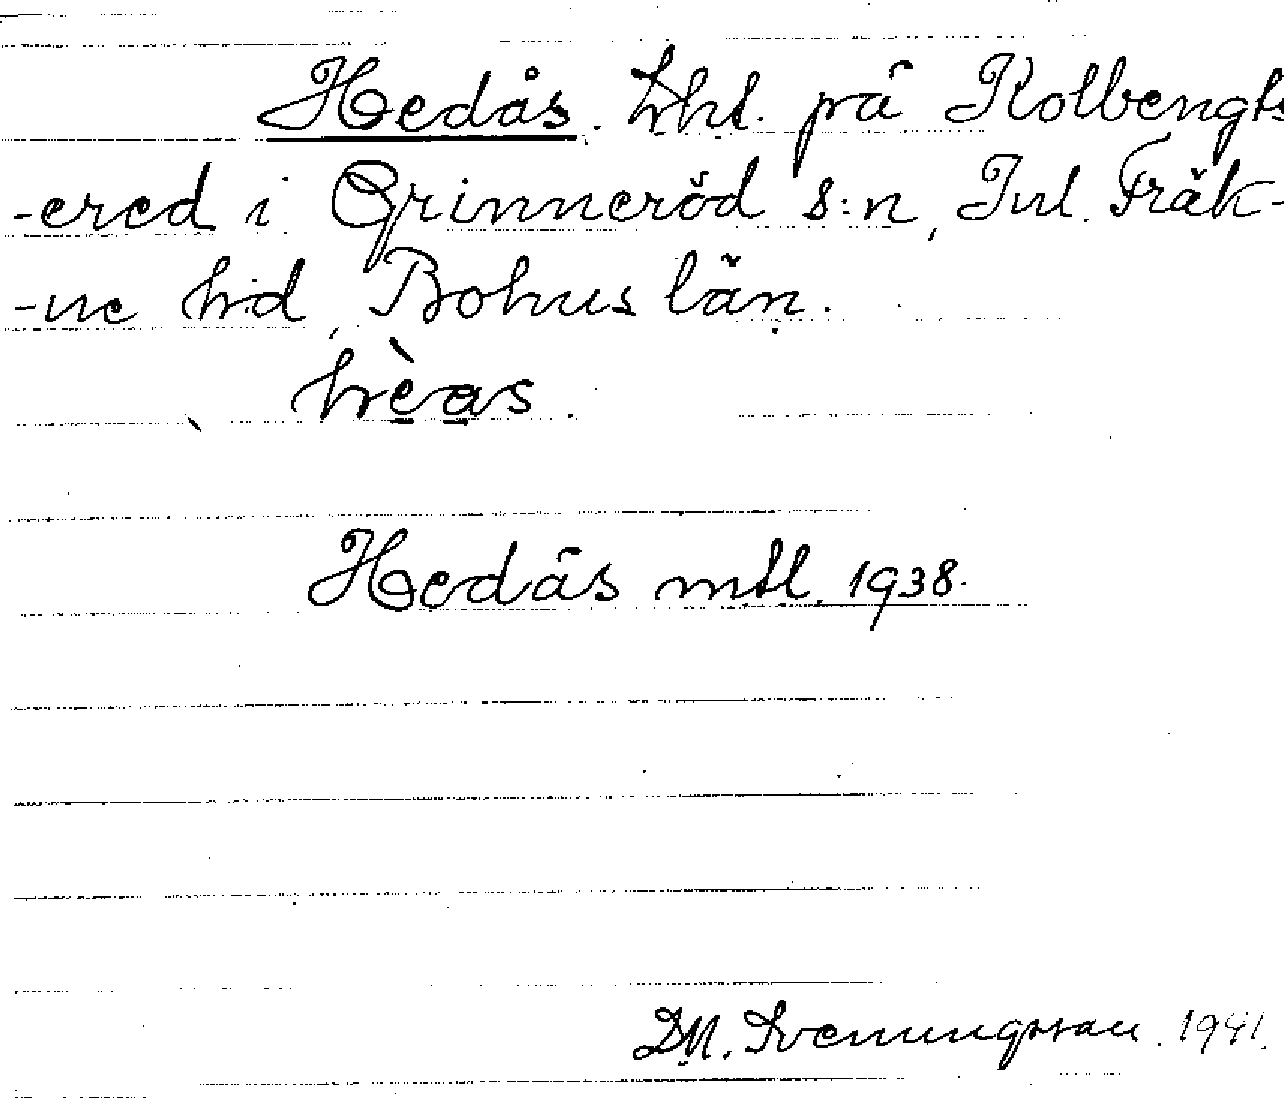 Hedås. Lht. på Kolbengts
-ered i Grinneröd s:n, Inl. Fräk-
-ne hd, Bohus län.
hèas.
Hedås mtl. 1938.
D.M. Svenungsson. 1941.